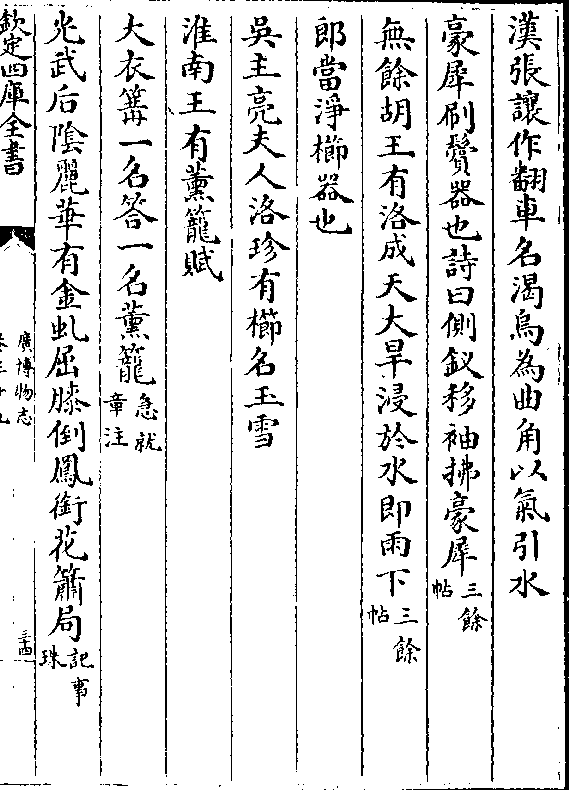 漢張讓作翻車名渴烏為曲角以氣引水
豪犀刷鬢器也詩曰側釵移袖拂豪犀三餘帖
無餘胡王有洛成天大旱浸於水即雨下三餘帖
郎當淨櫛器也
吳主亮夫人洛珍有櫛名玉雪
淮南王有薰籠賦
大衣篝一名答一名薰籠急就章注
光武后陰麗華有金虬屈膝倒鳳銜花簫局記事珠
欽定四庫全書
廣博物志
卷三十九
三四